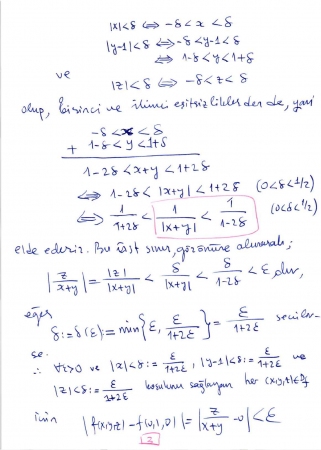 |x|<δ ⇔ -δ<x<δ
|y-1|<δ ⇔ -δ<y-1<δ
⇔ 1-δ<y<1+δ
ve
|z|<δ ⇔ -δ<z<δ
olup, birinci ve ikinci eşitsizliklerden de, yani
-δ<x<δ
+ 1-δ<y<1+δ
1-2δ<x+y<1+2δ
⇔ 1-2δ<|x+y|<1+2δ (0<δ<1/2)
⇔ 1/(1+2δ) < 1/|x+y| < 1/(1-2δ) (0<δ<1/2)
elde ederiz. Bu üst sınır, gözönüne alınırsa;
|z/(x+y)| = |z|/|x+y| < δ/|x+y| < δ/(1-2δ) < ε dur,
eğer
δ:=δ(ε):=min{ε, ε/(1+2ε)} = ε/(1+2ε) seçilir-
se.
∴ ∀ε>0 ve |x|<δ:=ε/(1+2ε), |y-1|<δ:=ε/(1+2ε) ve
|z|<δ:=ε/(1+2ε) koşulunu sağlayan her (x,y,z)∈Df
için |f(x,y,z)-f(0,1,0)|=|z/(x+y) -0|<ε
2